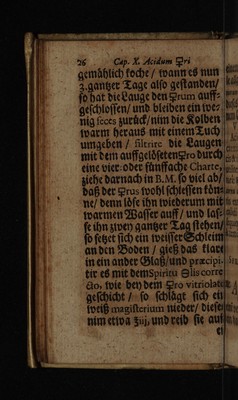 26 Cap. X. Acidum ☿ri
gemählich koche / wann es nun
3. gantzer Tage also gestanden /
so hat die Lauge den ☿rum auff-
geschlossen / und bleiben ein we-
nig feces zurück / nim die Kolben
warm heraus mit einem Tuch
umgeben / filtrire die Laugen
mit dem auffgelöseten ☿ro durch
eine vier- oder fünffache Charte,
ziehe darnach in B. M. so viel ab /
daß der ☿rus wohl schiessen kön-
ne / denn löse ihn wiederum mit
warmen Wasser auff / und las-
se ihn zwey gantzer Tag stehen /
so setzet sich ein weisser Schleim
an den Boden / gieß das klare
in ein ander Glaß / und præcipi-
tir es mit dem Spiritu 🜖lis corre-
cto, wie bey dem ☿ro vitriolat.
geschicht / so schlägt sich ein
weiß magisterium nieder / dieses
nim etwa und reib sie auf